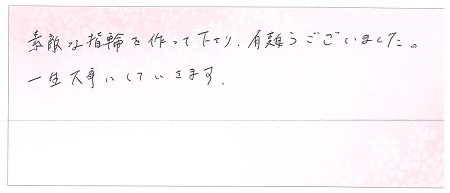 素敵な指輪を作って下さり、有難うございました。
一生大事にしていきます。